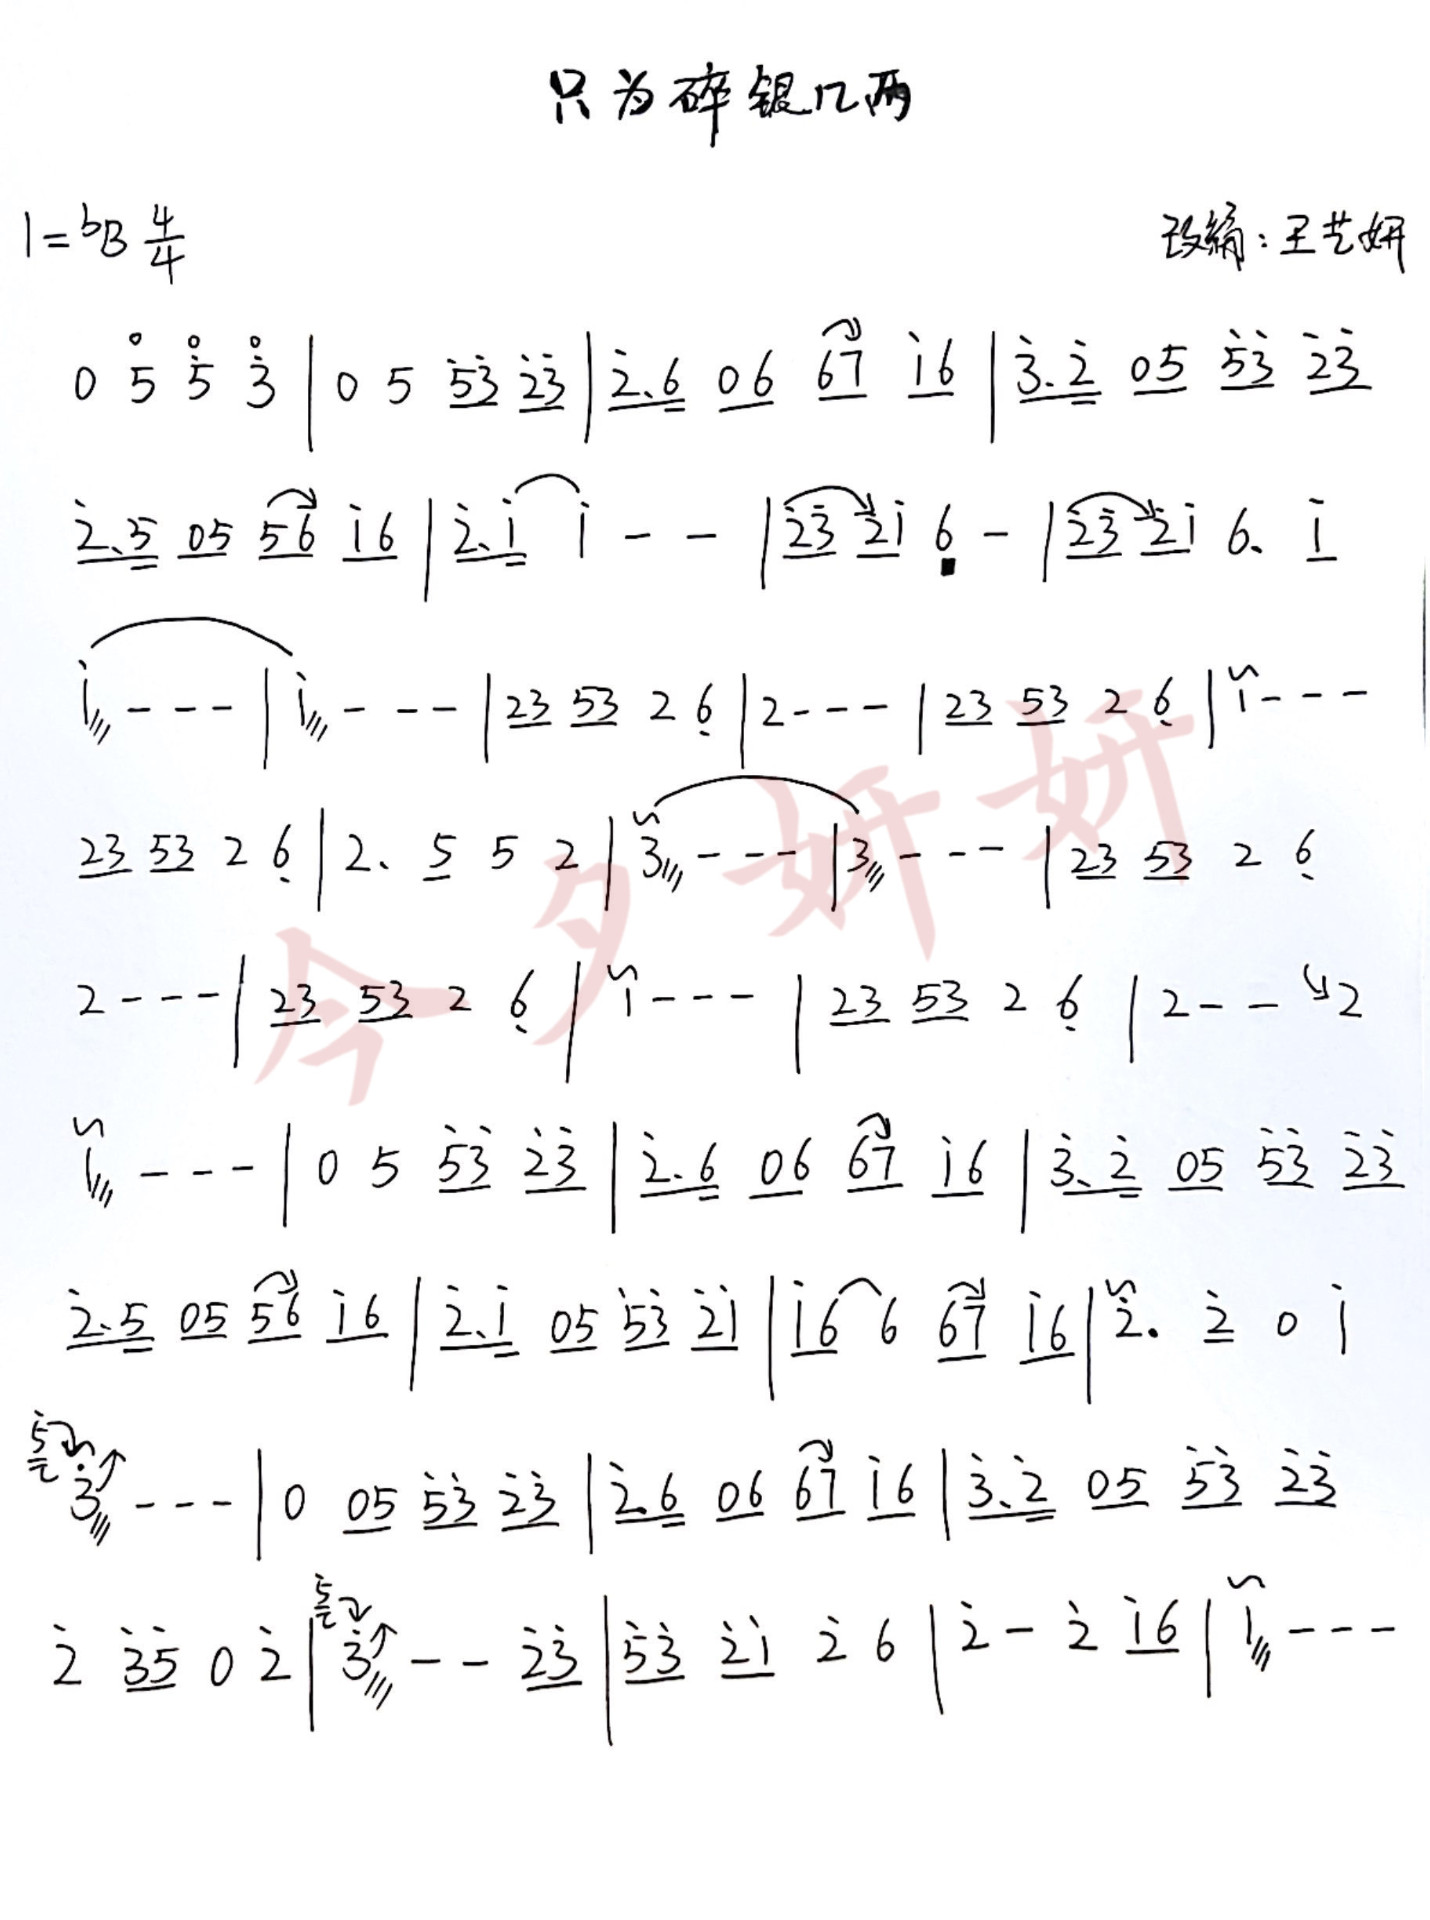 只为碎银几两
1=ᵇB 4/4
改编:王艺妍
0 5 5̇ 3̇ | 0 5 5̇3̇ 2̇3̇ | 2̇.6 06 67 1̇6 | 3̇.2̇ 05 5̇3̇ 2̇3̇
2̇.5 05 56 1̇6 | 2̇.1̇ 1̇ - - | 2̇3̇ 2̇1̇ 6 - | 2̇3̇ 2̇1̇ 6. 1̇
1̇ - - - | 1̇ - - - | 23 53 2 6̣ | 2 - - - | 23 53 2 6̣ | 1 - - -
23 53 2 6̣ | 2. 5 5 2 | 3 - - - | 3 - - - | 23 53 2 6̣
2 - - - | 23 53 2 6̣ | 1 - - - | 23 53 2 6̣ | 2 - - 2
1 - - - | 0 5 5̇3̇ 2̇3̇ | 2̇.6 06 67 1̇6 | 3̇.2̇ 05 5̇3̇ 2̇3̇
2̇.5 05 56 1̇6 | 2̇.1̇ 05 5̇3̇ 2̇1̇ | 1̇6 6 67 1̇6 | 2̇. 2̇ 0 1̇
5̇ 3̇ - - - | 0 05 5̇3̇ 2̇3̇ | 2̇.6 06 67 1̇6 | 3̇.2̇ 05 5̇3̇ 2̇3̇
2̇ 3̇5̇ 0 2̇ | 5̇ 3̇ - - 2̇3̇ | 5̇3̇ 2̇1̇ 2̇ 6 | 2̇ - 2̇ 1̇6 | 1̇ - - -
今夕妍妍